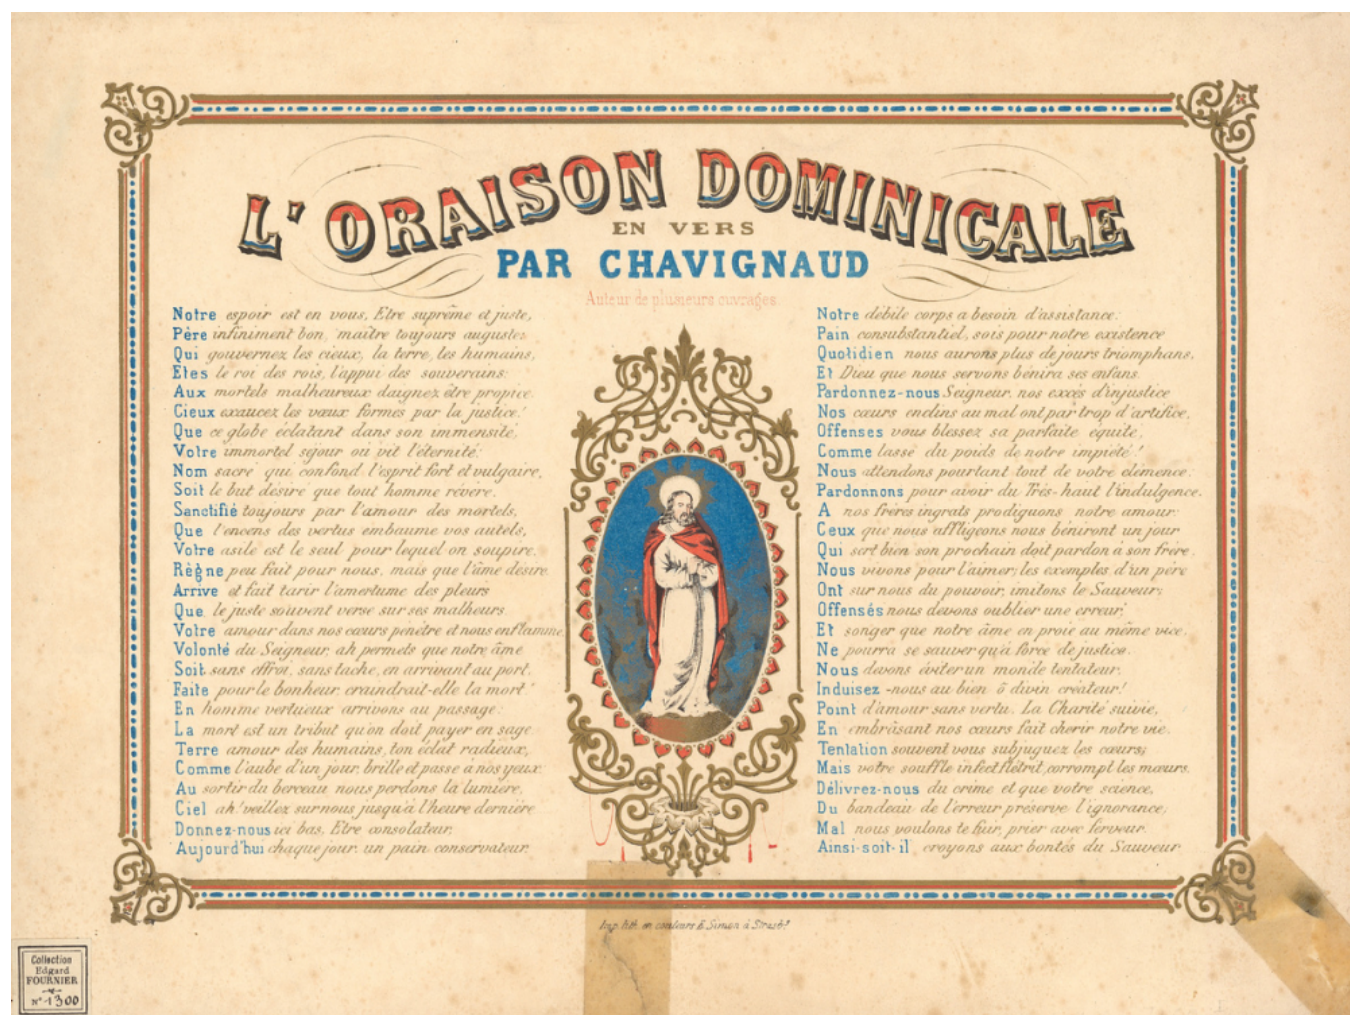 L'ORAISON DOMINICALE
EN VERS
PAR CHAVIGNAUD
Auteur de plusieurs ouvrages
Notre espoir est en vous, Etre suprême et juste,
Père infiniment bon, maître toujours auguste;
Qui gouvernez les cieux, la terre, les humains,
Etes le roi des rois, l'appui des souverains:
Aux mortels malheureux daignez être propice
Cieux exaucez les vœux formés par la justice!
Que ce globe éclatant dans son immensité,
Votre immortel séjour où vit l'éternité:
Nom sacré qui confond l'esprit fort et vulgaire,
Soit le but désiré que tout homme révère.
Sanctifié toujours par l'amour des mortels,
Que l'encens des vertus embaume vos autels,
Votre asile est le seul pour lequel on soupire,
Règne peu fait pour nous, mais que l'âme désire
Arrive et fait tarir l'amertume des pleurs
Que le juste souvent verse sur ses malheurs
Votre amour dans nos cœurs pénètre et nous enflamme,
Volonté du Seigneur, ah permets que notre âme
Soit sans effroi, sans tache, en arrivant au port.
Faite pour le bonheur craindrait-elle la mort
En homme vertueux arrivons au passage:
La mort est un tribut qu'on doit payer en sage
Terre amour des humains, ton éclat radieux,
Comme l'aube d'un jour, brille et passe à nos yeux:
Au sortir du berceau nous perdons la lumière,
Ciel ah! veillez sur nous jusqu'à l'heure dernière
Donnez-nous ici bas, Etre consolateur,
Aujourd'hui chaque jour un pain conservateur.
Notre débile corps a besoin d'assistance:
Pain consubstantiel, sois pour notre existence
Quotidien nous aurons plus de jours triomphans,
Et Dieu que nous servons bénira ses enfans.
Pardonnez-nous Seigneur, nos excès d'injustice
Nos cœurs enclins au mal ont par trop d'artifice,
Offenses vous blessez sa parfaite équité,
Comme lassé du poids de notre impiété!
Nous attendons pourtant tout de votre clémence:
Pardonnons pour avoir du Très-haut l'indulgence.
A nos frères ingrats prodiguons notre amour:
Ceux que nous affligeons nous béniront un jour
Qui sert bien son prochain doit pardon à son frère.
Nous vivons pour l'aimer; les exemples d'un père
Ont sur nous du pouvoir, imitons le Sauveur:
Offensés nous devons oublier une erreur;
Et songer que notre âme en proie au même vice.
Ne pourra se sauver qu'à force de justice.
Nous devons éviter un monde tentateur.
Induisez-nous au bien ô divin créateur!
Point d'amour sans vertu. La Charité suivie,
En embrâsant nos cœurs fait chérir notre vie.
Tentation souvent vous subjuguez les cœurs;
Mais votre souffle infect flétrit, corrompt les mœurs.
Délivrez-nous du crime et que votre science,
Du bandeau de l'erreur préserve l'ignorance;
Mal nous voulons te fuir, prier avec ferveur.
Ainsi-soit-il croyons aux bontés du Sauveur
Imp. lith. en couleurs E. Simon à Strasbg
Collection
Edgard
FOURNIER
N° 1300